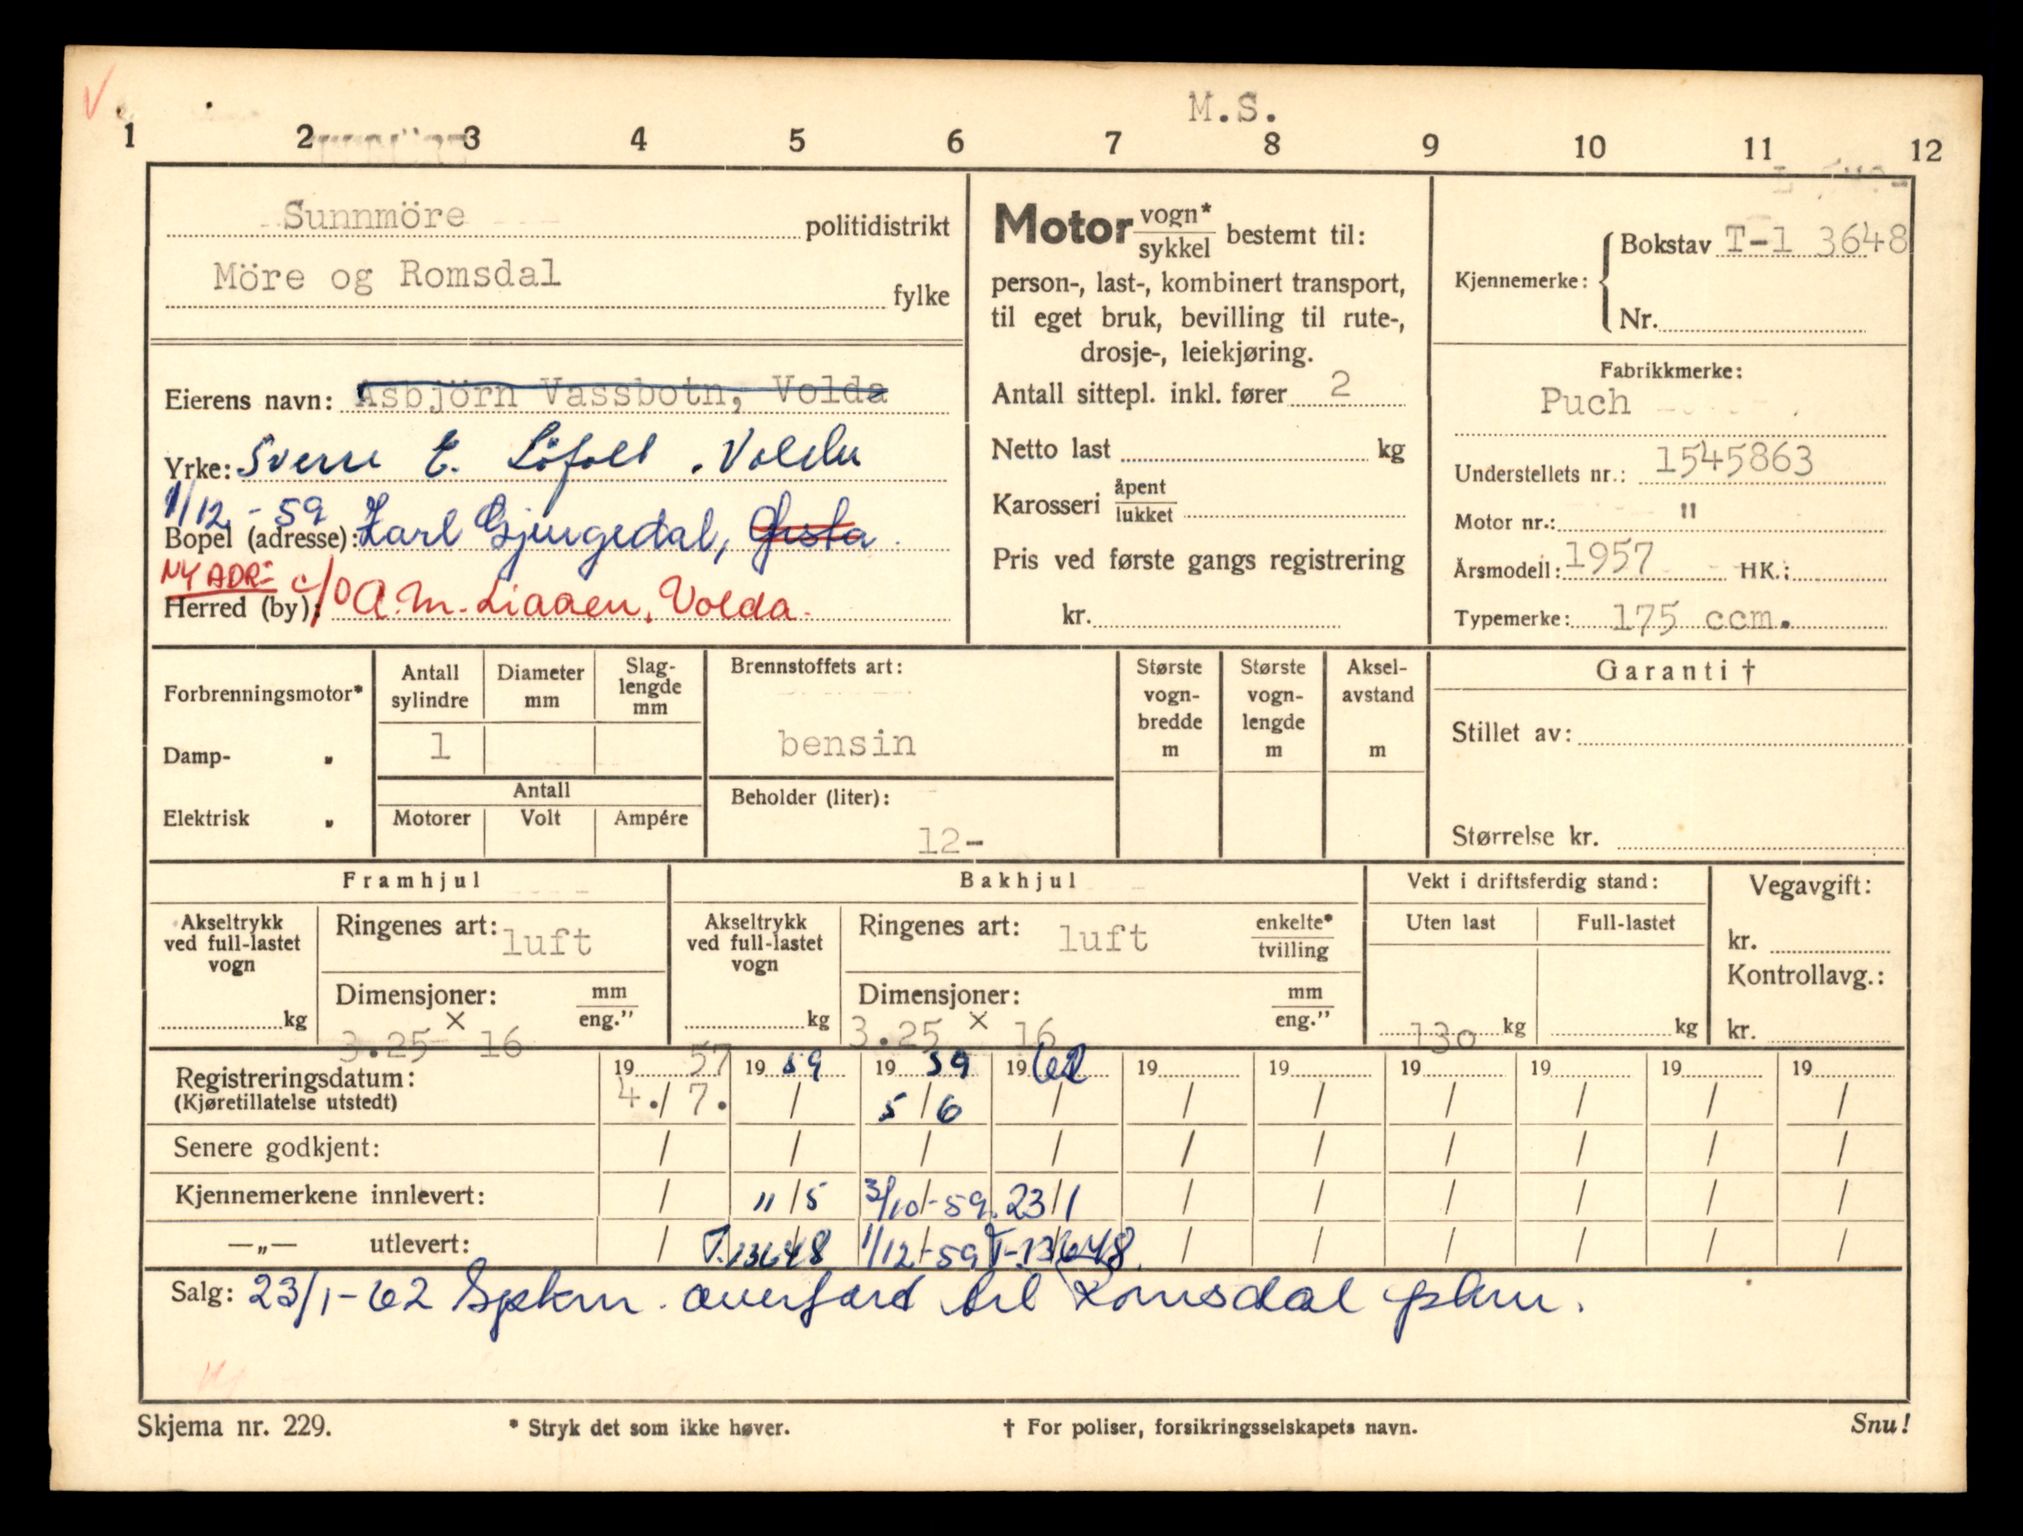 M.S.
1 2 3 4 5 6 7 8 9 10 11 12
Sunnmöre politidistrikt
Möre og Romsdal fylke
Eierens navn: Asbjörn Vassbotn, Volda
Yrke: Sverre E. Löfoll. Volda
1/12 - 59
Bopel (adresse): Karl Gjengedal, Ørsta.
NY ADR: c/o A.M. Liaaen, Volda.
Herred (by):
Motor vogn* sykkel bestemt til:
person-, last-, kombinert transport,
til eget bruk, bevilling til rute-,
drosje-, leiekjøring.
Antall sittepl. inkl. fører 2
Netto last kg
Karosseri åpent lukket
Pris ved første gangs registrering
kr.
Kjennemerke: Bokstav T-1 3648
Nr.
Fabrikkmerke:
Puch
Understellets nr.: 1545863
Motor nr.: "
Årsmodell: 1957 HK.:
Typemerke: 175 ccm.
Forbrenningsmotor*
Damp- „
Elektrisk „
Antall sylindre Diameter mm Slag-lengde mm
1
Antall
Motorer Volt Ampére
Brennstoffets art:
bensin
Beholder (liter):
12-
Største vogn-bredde m
Største vogn-lengde m
Aksel-avstand m
Garanti †
Stillet av:
Størrelse kr.
Framhjul
Akseltrykk ved full-lastet vogn
kg
Ringenes art: luft
Dimensjoner: mm eng."
3.25 × 16
Bakhjul
Akseltrykk ved full-lastet vogn
kg
Ringenes art: luft enkelte* tvilling
Dimensjoner: mm eng."
3.25 × 16
Vekt i driftsferdig stand:
Uten last Full-lastet
130 kg kg
Vegavgift:
kr.
Kontrollavg.:
kr.
Registreringsdatum: 19 57 19 59 19 59 19 62 19 19 19 19 19 19
(Kjøretillatelse utstedt) 4. / 7. / 5 / 6 / / / / / / /
Senere godkjent: / / / / / / / / / /
Kjennemerkene innlevert: / 11 / 5 3/10 - 59. 23 / 1 / / / / / /
—„— utlevert: / T.13648 1/12 - 59 T-13648. / / / / / /
Salg: 23/1-62 Spkm. overført til Romsdal pkm.
Skjema nr. 229. * Stryk det som ikke høver. † For poliser, forsikringsselskapets navn. Snu!